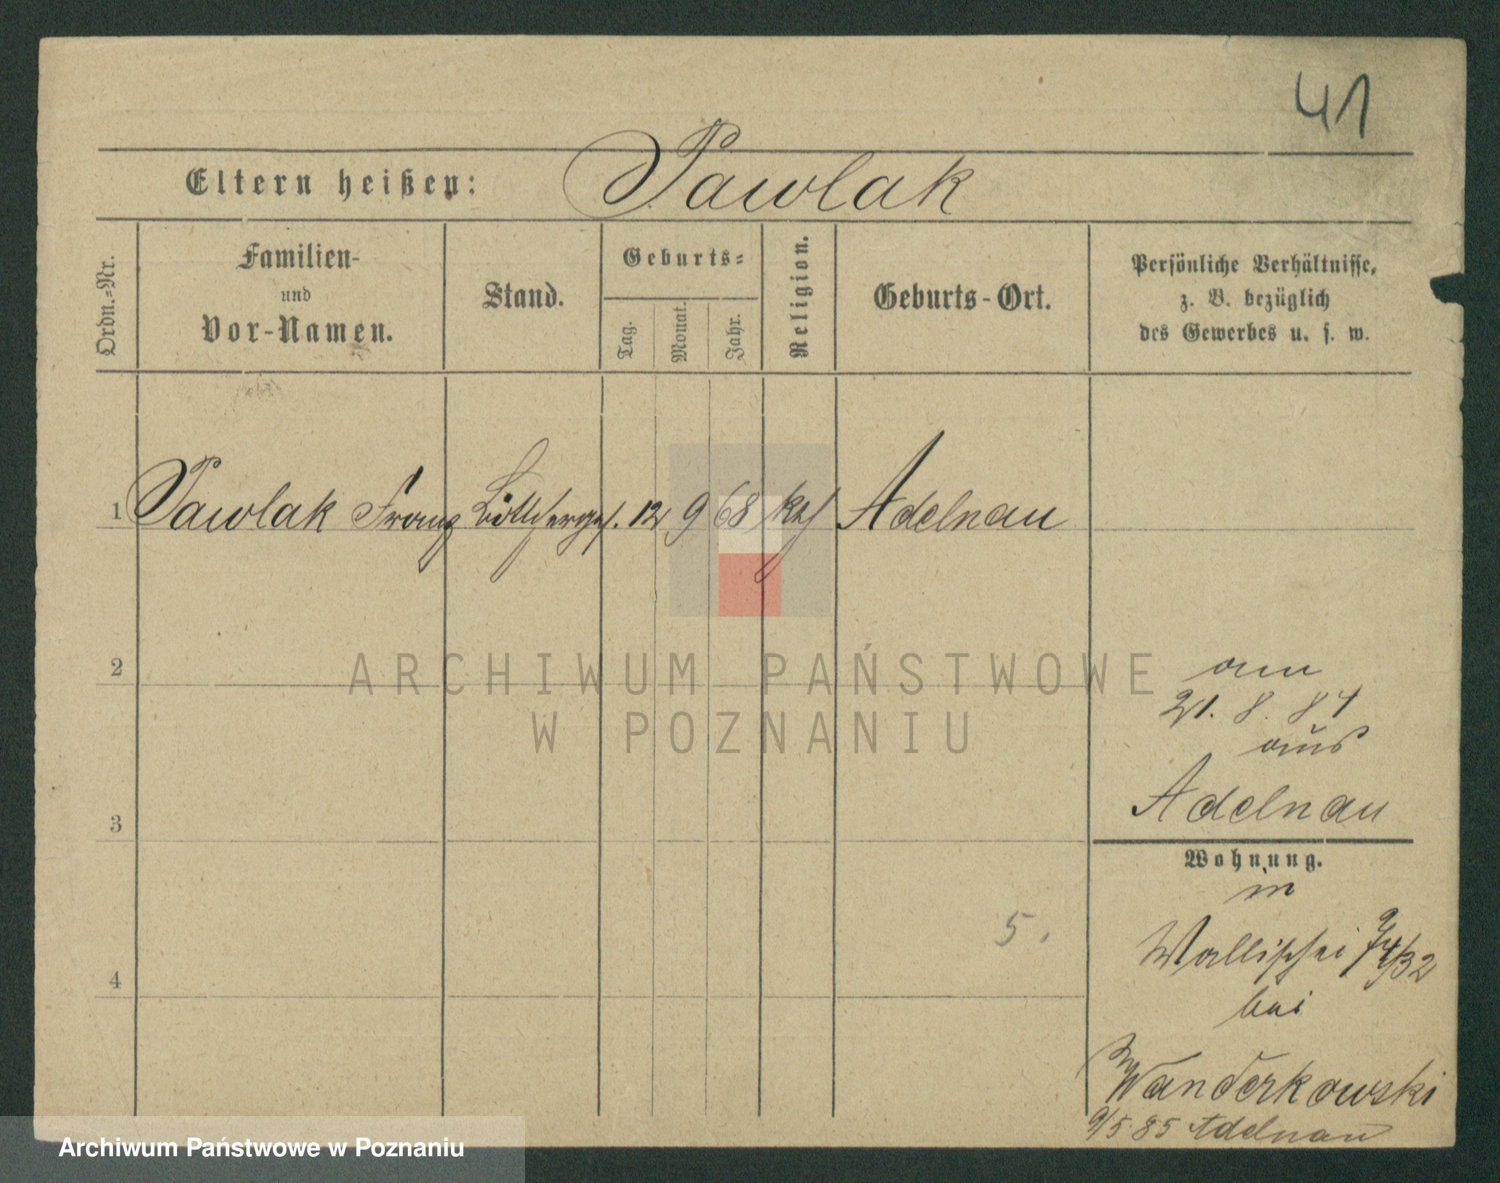 41
Eltern heißen: Pawlak
Ordn.-Nr.
Familien-
und
Vor-Namen.
Stand.
Geburts-
Tag.
Monat.
Jahr.
Religion.
Geburts-Ort.
Persönliche Verhältnisse,
z. B. bezüglich
des Gewerbes u. s. w.
1 Pawlak Franz Böttcherges. 12 9 68 kath Adelnau
2
ARCHIWUM PAŃSTWOWE
W POZNANIU
am
21. 8. 84
aus
3
Adelnau
Wohnung.
in
5.
Wallischei
4
bei
Wanderkowski
9/5 85 Adelnau
Archiwum Państwowe w Poznaniu